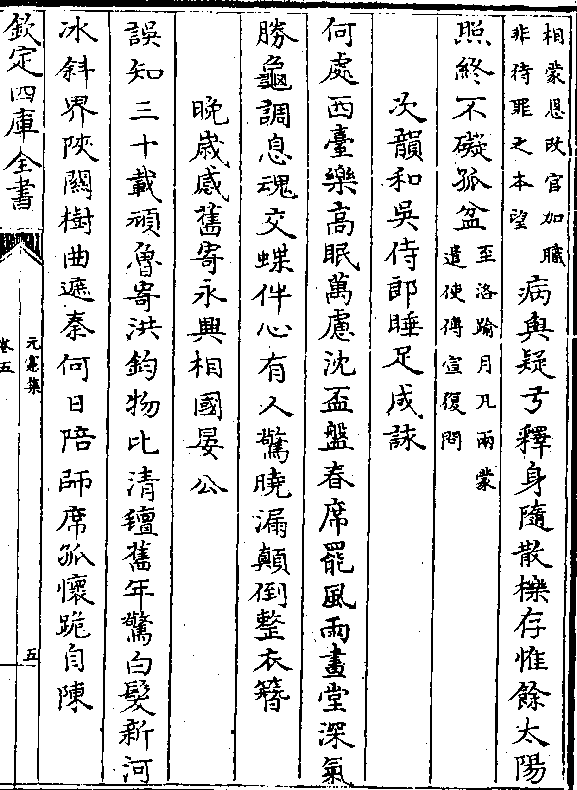 相蒙恩改官加職
非待罪之本望
病與疑弓釋身隨散櫟存惟餘太陽
照終不礙孤盆
至洛踰月凡兩蒙
遣使傳宣復問
次韻和吳侍郎睡足成詠
何處西臺樂高眠萬慮沈盃盤春席罷風雨畫堂深氣
勝龜調息魂交蝶伴心有人驚曉漏顛倒整衣簪
晚歲感舊寄永興相國晏公
誤知三十載頑魯寄洪鈞物比清氊舊年驚白髮新河
冰斜界陜關樹曲遮秦何日陪師席孤懷跪自陳
欽定四庫全書
元憲集
卷五
五